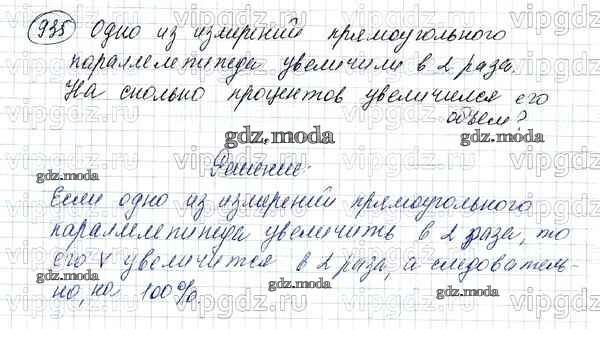 935 Одно из измерений прямоугольного
параллелепипеда увеличили в 2 раза.
На сколько процентов увеличился его
объем?
gdz.moda
Решение:
gdz.moda
gdz.moda
Если одно из измерений прямоугольного
параллелепипеда увеличить в 2 раза, то
его V увеличится в 2 раза, а следователь-
но, на 100%.
gdz.moda
gdz.moda
gdz.moda